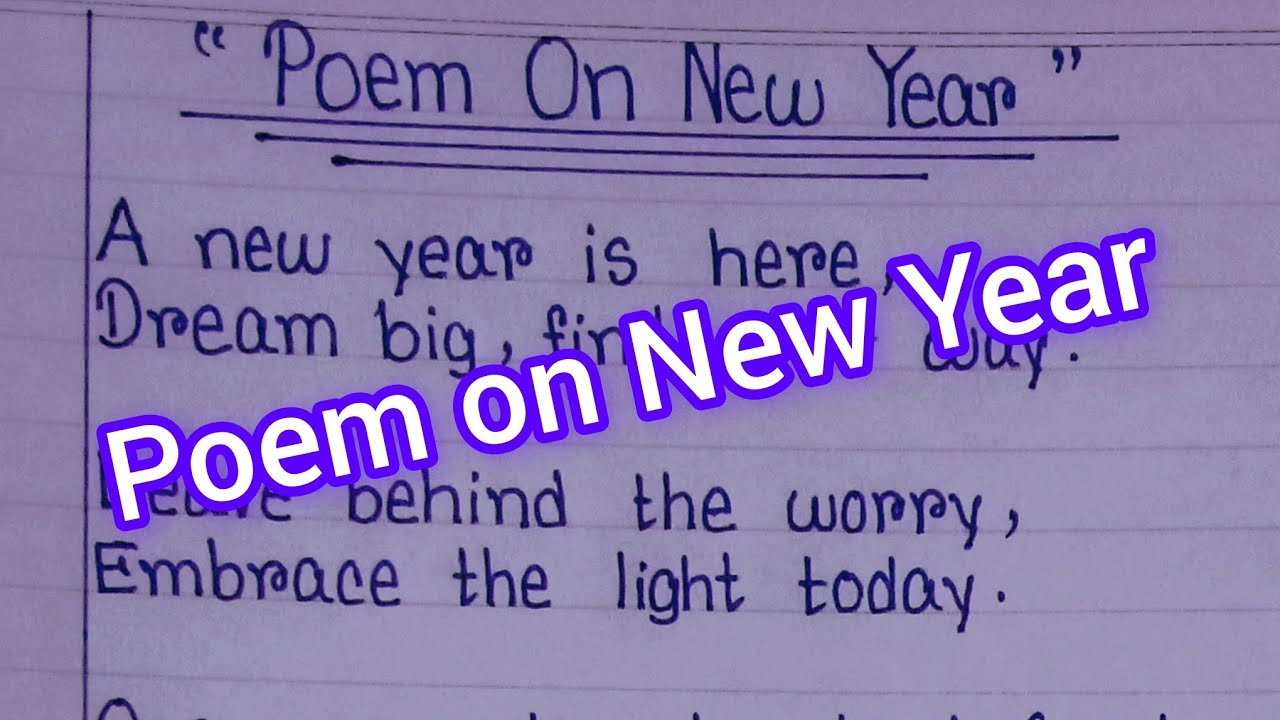 “Poem On New Year”
A new year is here,
Dream big, way.
Poem on New Year
behind the worry,
Embrace the light today.